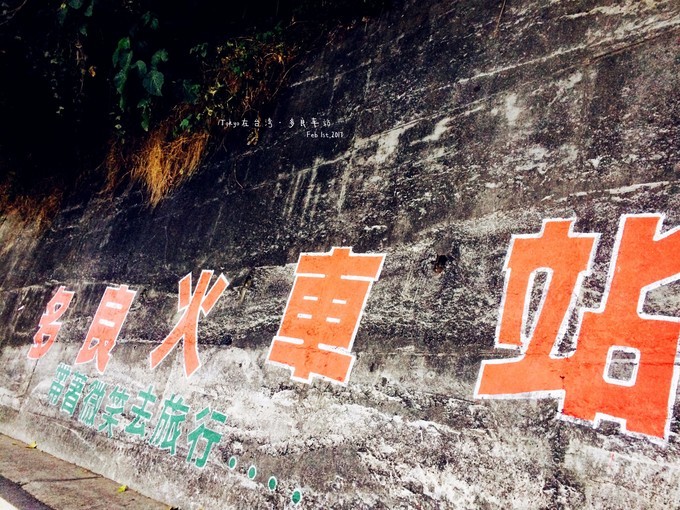 Tokyo在台湾·多良车站
Feb 1st,2017
多良火車站
帶著微笑去旅行....